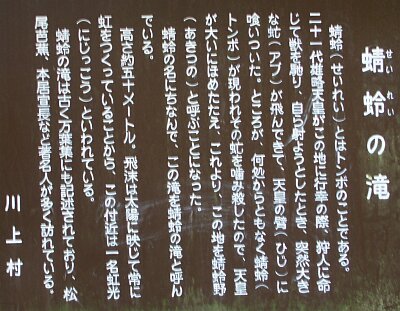 蜻蛉の滝
せいれい
蜻蛉(せいれい)とはトンボのことである。
二十一代雄略天皇がこの地に行幸の際、狩人に命
じて獣を馳り、自ら射ようとしたとき、突然大き
な虻(アブ)が飛んできて、天皇の臂(ひじ)に
喰いついた。ところが、何処からともなく蜻蛉(
トンボ)が現われその虻を噛み殺したので、天皇
が大いにほめたたえ、これより、この地を蜻蛉野
(あきつの)と呼ぶことになった。
蜻蛉の名にちなんで、この滝を蜻蛉の滝と呼ん
でいる。
高さ約五十メートル。飛沫は太陽に映じて常に
虹をつくっていることから、この付近は一名虹光
(にじっこう)といわれている。
蜻蛉の滝は古く万葉集にも記述されており、松
尾芭蕉、本居宣長など著名人が多く訪れている。
川上村